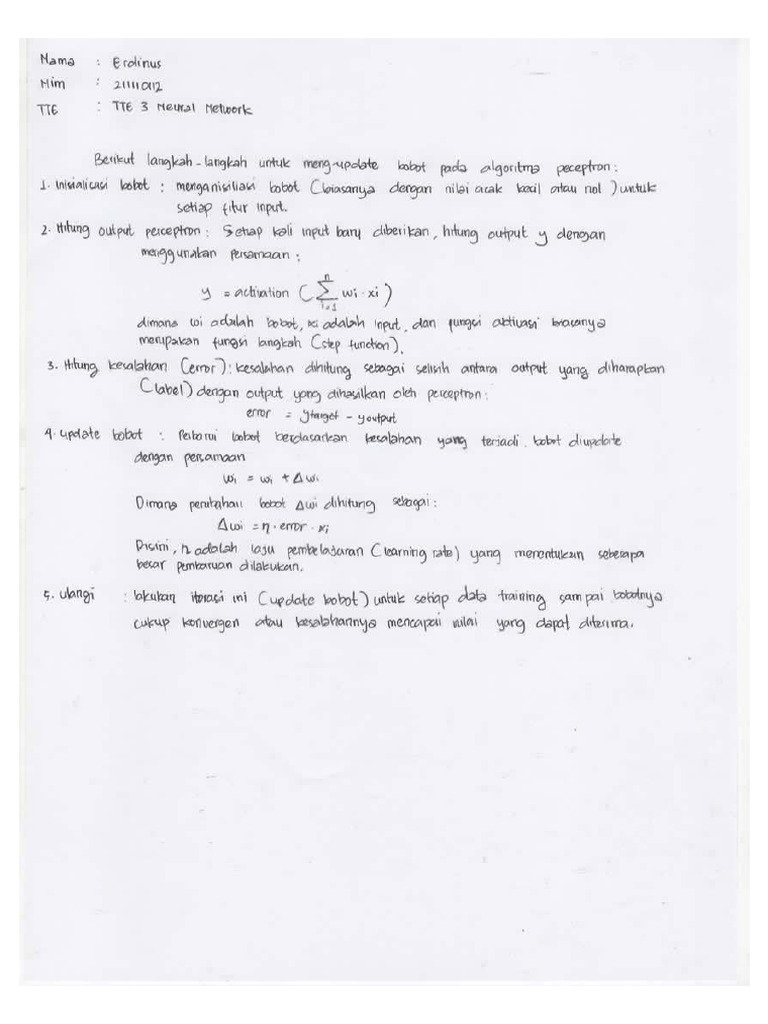 Nama : Erdinus
Nim : 211110112
TTE : TTE 3 Neural Network
Berikut langkah-langkah untuk meng-update bobot pada algoritma peceptron :
1. Inisialicasi bobot : menganisiliasi bobot (biasanya dengan nilai acak kecil atau nol) untuk
setiap fitur input.
2. Hitung output perceptron : Setiap kali input baru diberikan, hitung output y dengan
menggunakan persamaan :
y = activation (∑ⁿᵢ₌₁ wi · xi)
dimana wi adalah bobot, xi adalah input, dan fungsi aktivasi biasanya
merupakan fungsi langkah (step function).
3. Hitung kesalahan (error) : kesalahan dihitung sebagai selisih antara output yang diharapkan
(label) dengan output yang dihasilkan oleh perceptron :
error = ytarget - youtput
4. update bobot : Perbarui bobot berdasarkan kesalahan yang terjadi. bobot diupdate
dengan persamaan
wi = wi + Δwi
Dimana perubahan bobot Δwi dihitung sebagai :
Δwi = η · error · xi
Disini, η adalah laju pembelajaran (learning rate) yang menentukan seberapa
besar pembaruan dilakukan.
5. ulangi : lakukan iterasi ini (update bobot) untuk setiap data training sampai bobotnya
cukup konvergen atau kesalahannya mencapai nilai yang dapat diterima.